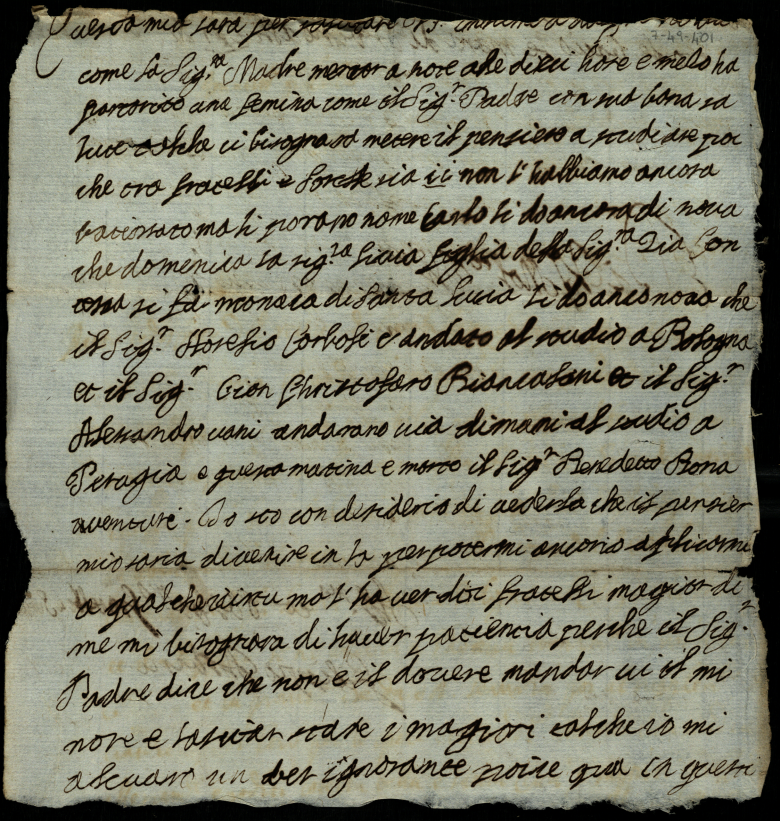 Questa mia sara per salutare V.S.
7-49-401
come la Sig.ra Madre mercor a note alle dieci hore e meza ha
partorito una femina come il Sig.r Padre con sua bona sa
lute ci bisognara metere il pensiero a studiare poi
che tra fratelli e sorelle sia non l'habbiamo ancora
ma li porano nome Carlo li do ancora di nova
che domenica la sig.ra Livia figlia della Sig.ra Zia Con
si fa monaca di Santa Lucia li do anco nova che
il Sig.r Horesio Corboli e andato al studio a Bologna
et il Sig.r Gion Christofaro Biancalani et il Sig.r
Alesandro vani andarano via dimani al studio a
Perugia e questa matina e morto il Sig.r Benedetto Bona
aventuri. Io sto con desiderio di vederla che il pensier
mio saria di venire in la per potermi ancorio aplicarmi
a qualche virtu ma l'haver dici fratelli magior di
me mi bisognara di haver paciencia perche il Sig.r
Padre dice che non e il dovere mandar vi il mi
nore e lasciar stare i magiori talche io mi
alevaro un bel ignorante poice qua in questi